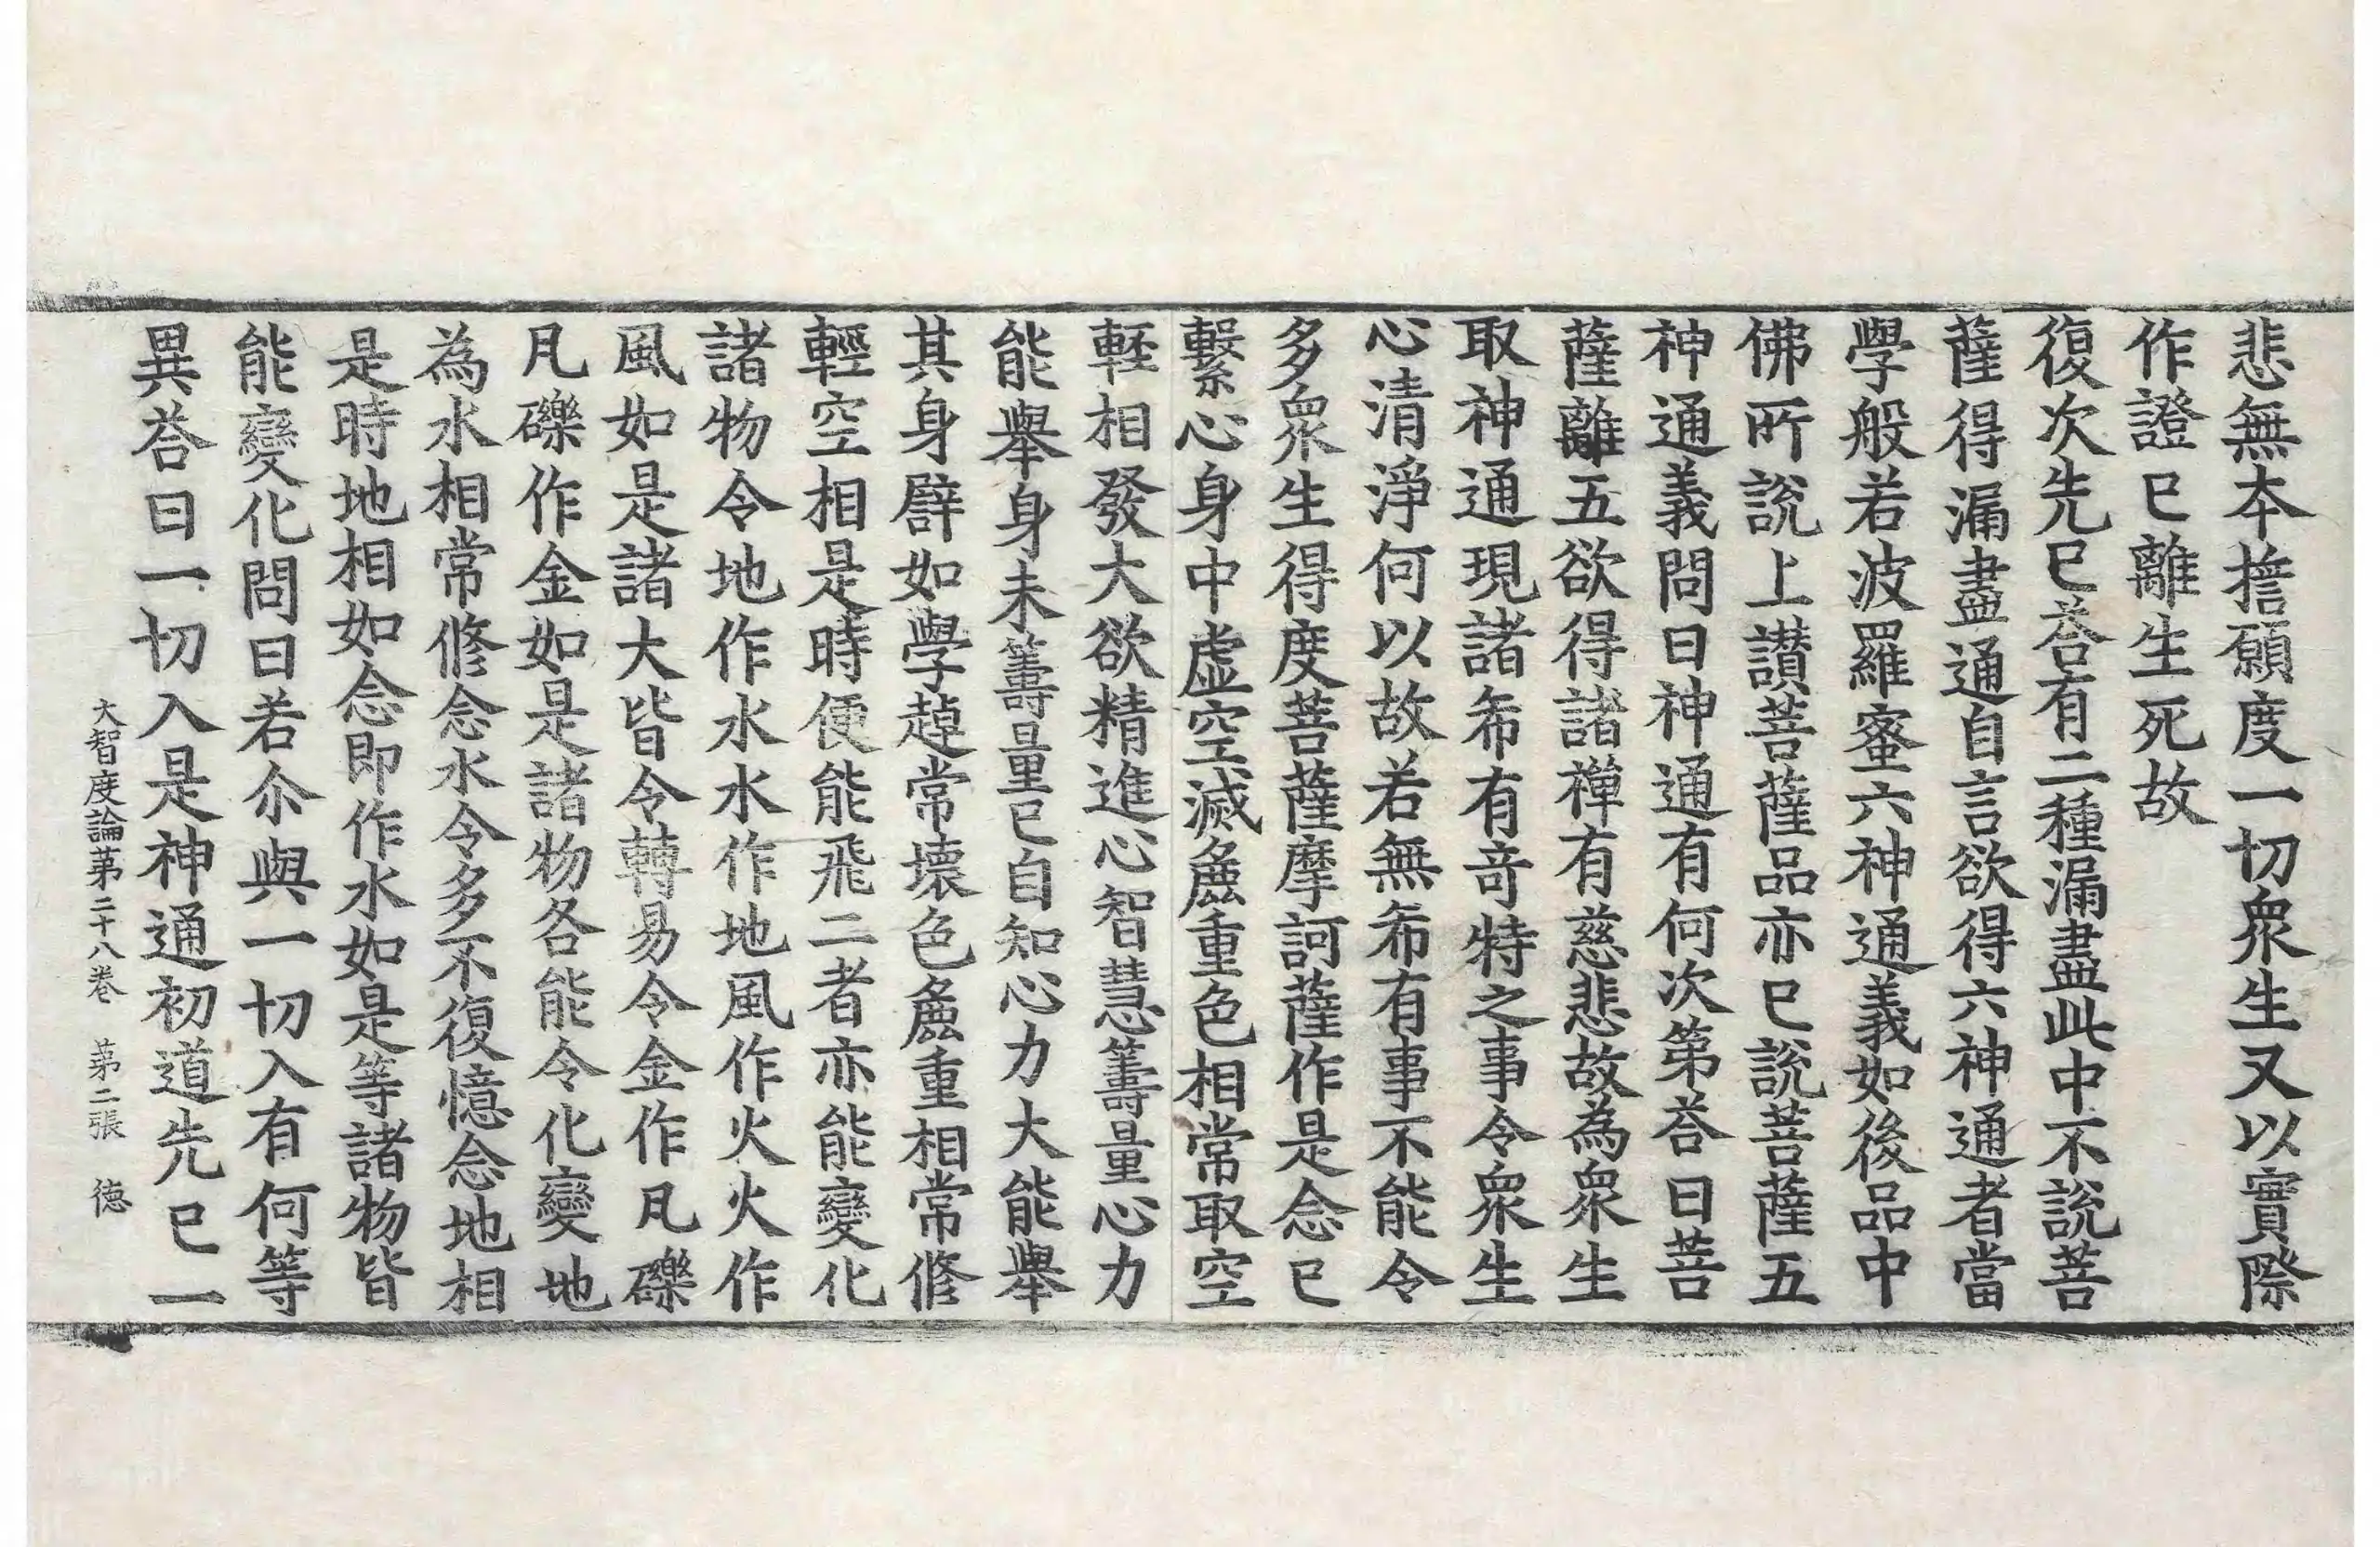 悲無本擔願度一切衆生又以實際
作證已離生死故
復次先已荅有二種漏盡此中不說菩
薩得漏盡通自言欲得六神通者當
學般若波羅蜜六神通義如後品中
佛所說上讃菩薩品亦已說菩薩五
神通義問曰神通有何次第荅曰菩
薩離五欲得諸禪有慈悲故為衆生
取神通現諸希有竒特之事令衆生
心清淨何以故若無希有事不能令
多衆生得度菩薩摩訶薩作是念已
繫心身中虛空滅麁重色相常取空
輕相發大欲精進心智慧籌量心力
能舉身未籌量已自知心力大能舉
其身辟如學趠常壞色麁重相常修
輕空相是時便能飛二者亦能變化
諸物令地作水水作地風作火火作
風如是諸大皆令轉易令金作凡礫
凡礫作金如是諸物各能令化變地
為水相常修念水令多不復憶念地相
是時地相如念即作水如是等諸物皆
能變化問曰若尒與一切入有何等
異荅曰一切入是神通初道先已一
大智度論第二十八卷 第二張 德